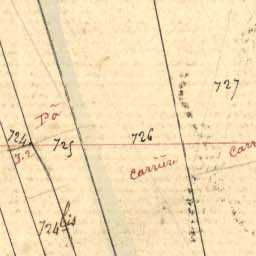 727
Põ
724
725
726
J.2
Carrièr
Carr
724 bis